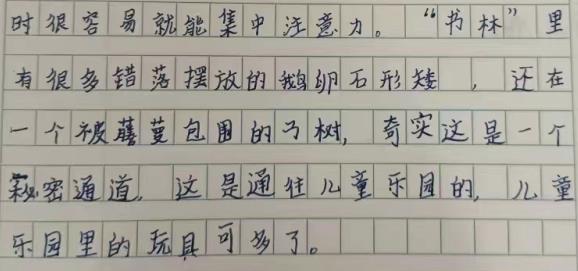 时很容易就能集中注意力。“书林”里
有很多错落摆放的鹅卵石形矮，还在
一个被藤蔓包围的弓树，奇实这是一个
秘密通道，这是通往儿童乐园的，儿童
乐园里的玩具可多了。